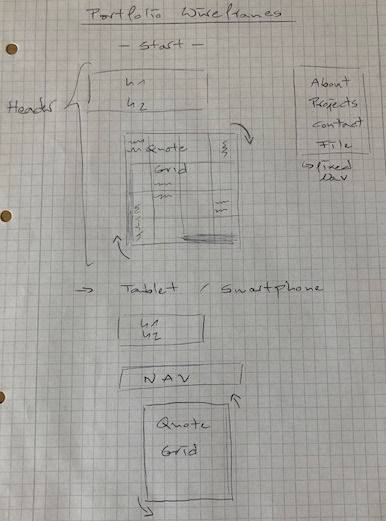 Portfolio Wireframes
- Start -
Header
h1
h2
Quote
Grid
About
Projects
Contact
File
↳ fixed
Nav
→ Tablet / Smartphone
h1
h2
NAV
Quote
Grid